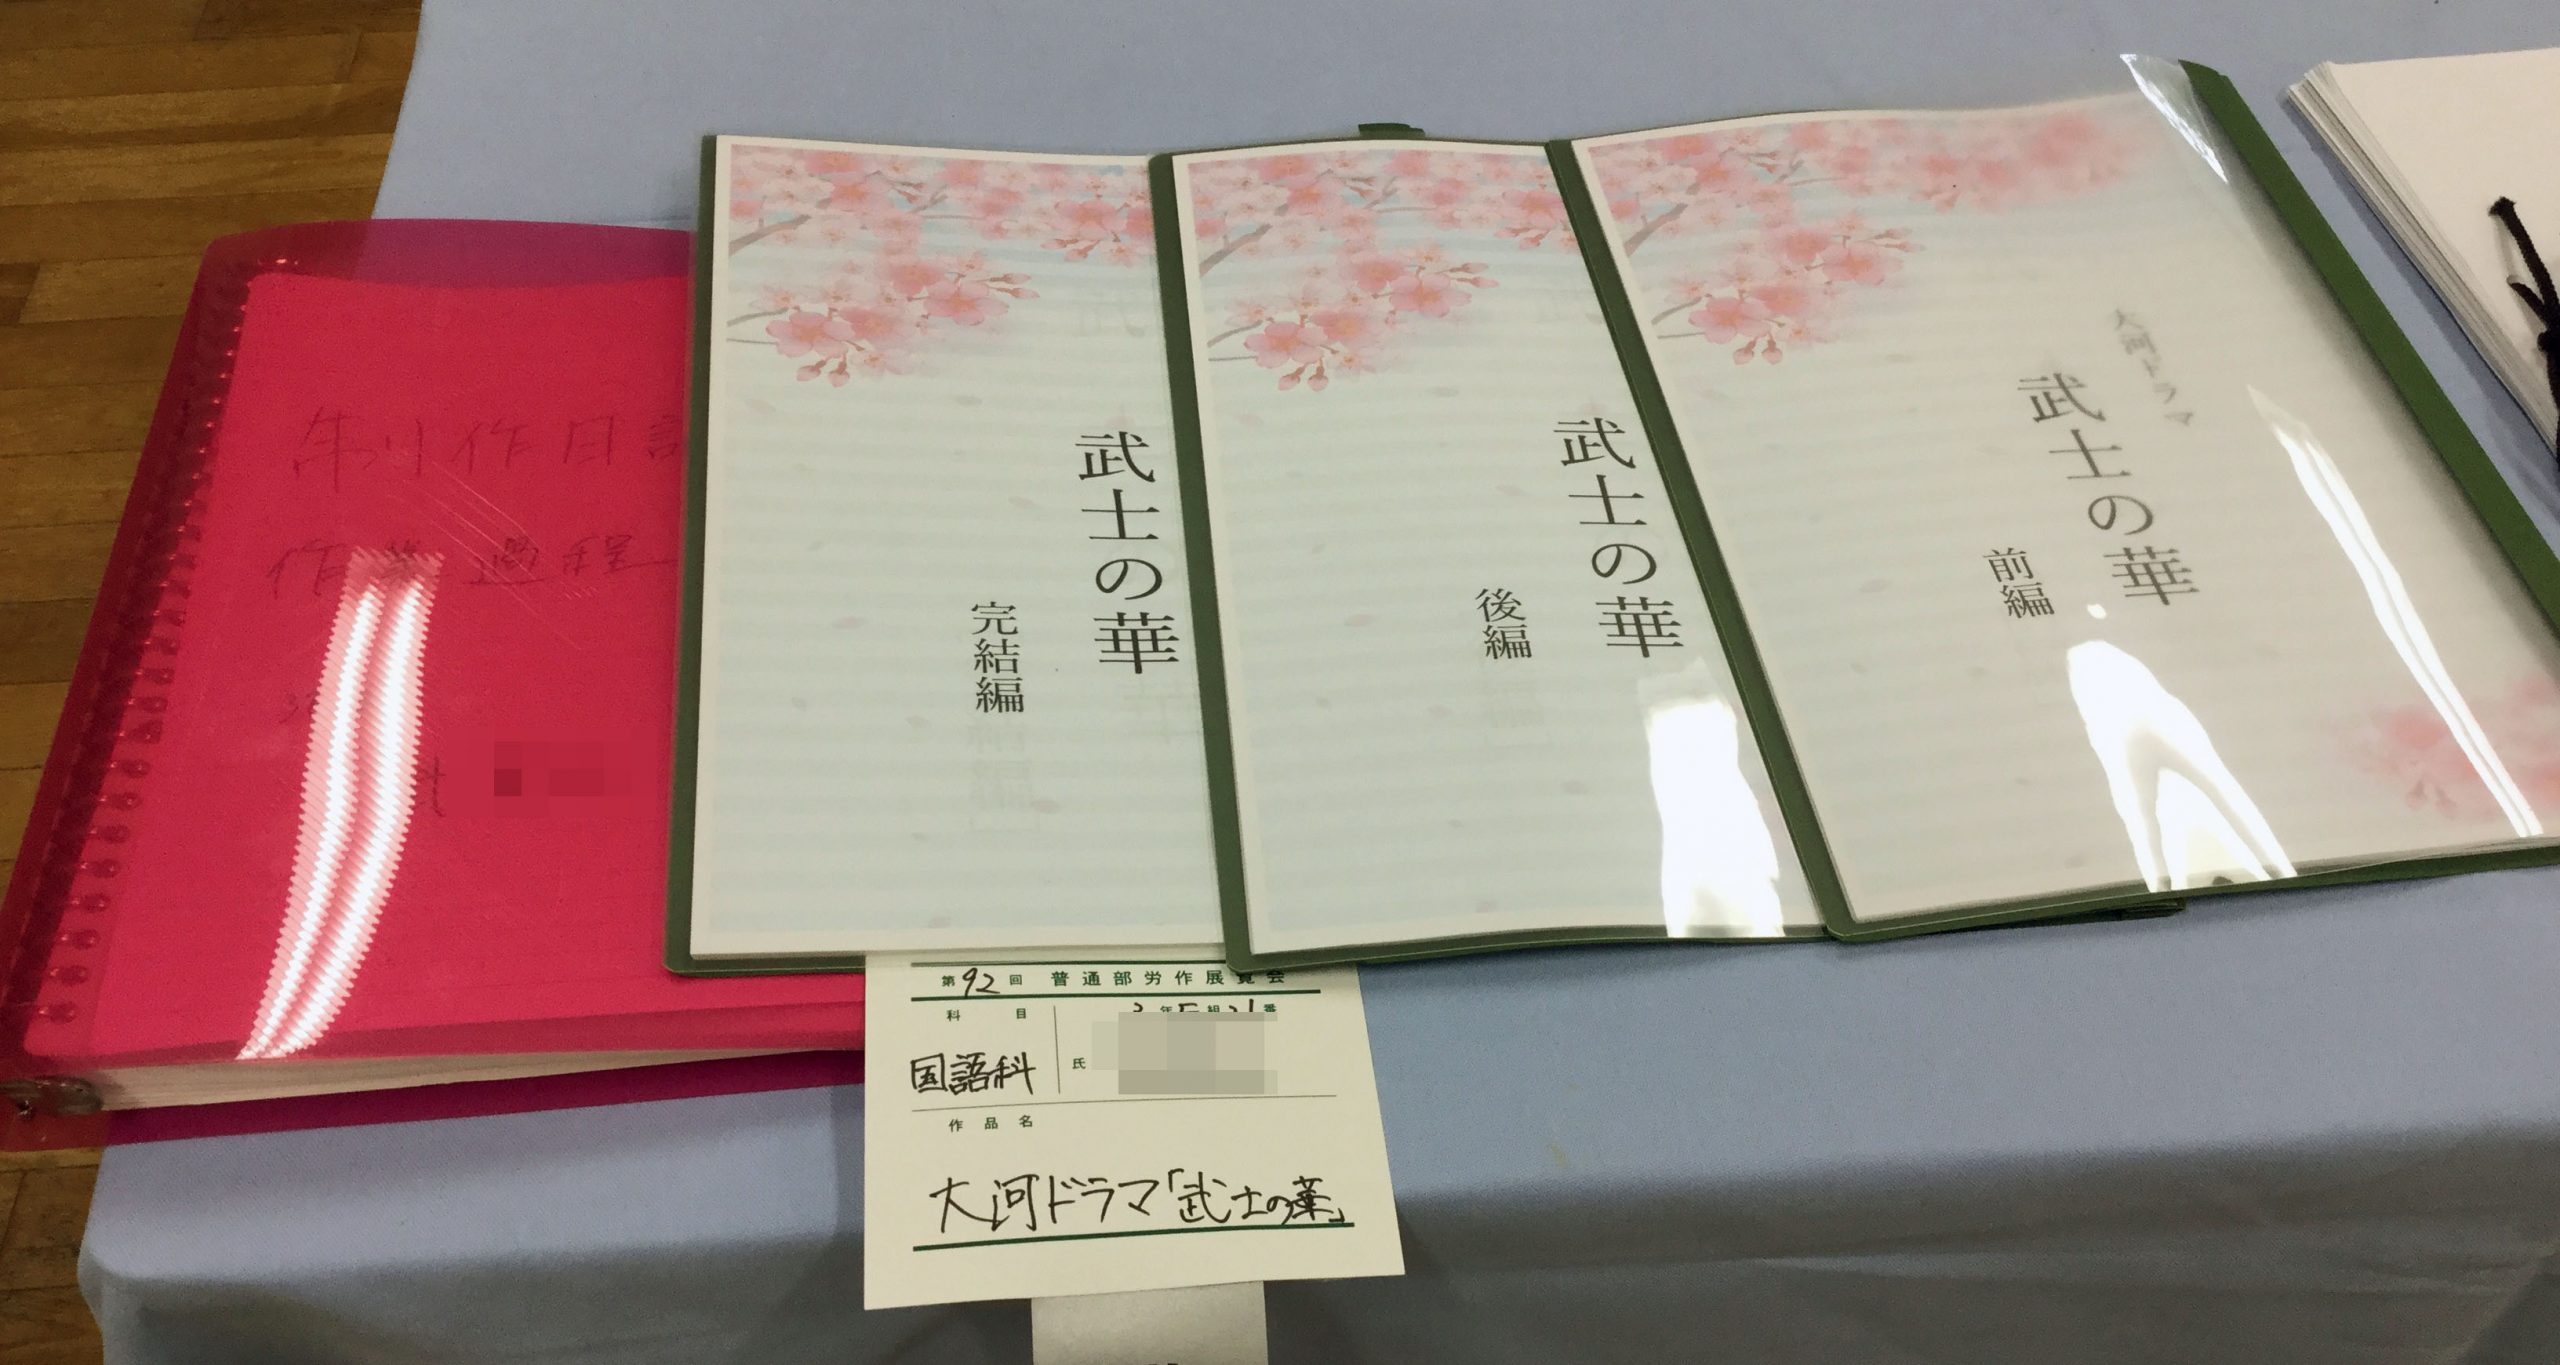 制作日記
作業過程
武士の華
完結編
武士の華
後編
大河ドラマ
武士の華
前編
第92回 普通部労作展覧会
科目
年 組 番
国語科
氏
作品名
大河ドラマ「武士の華」